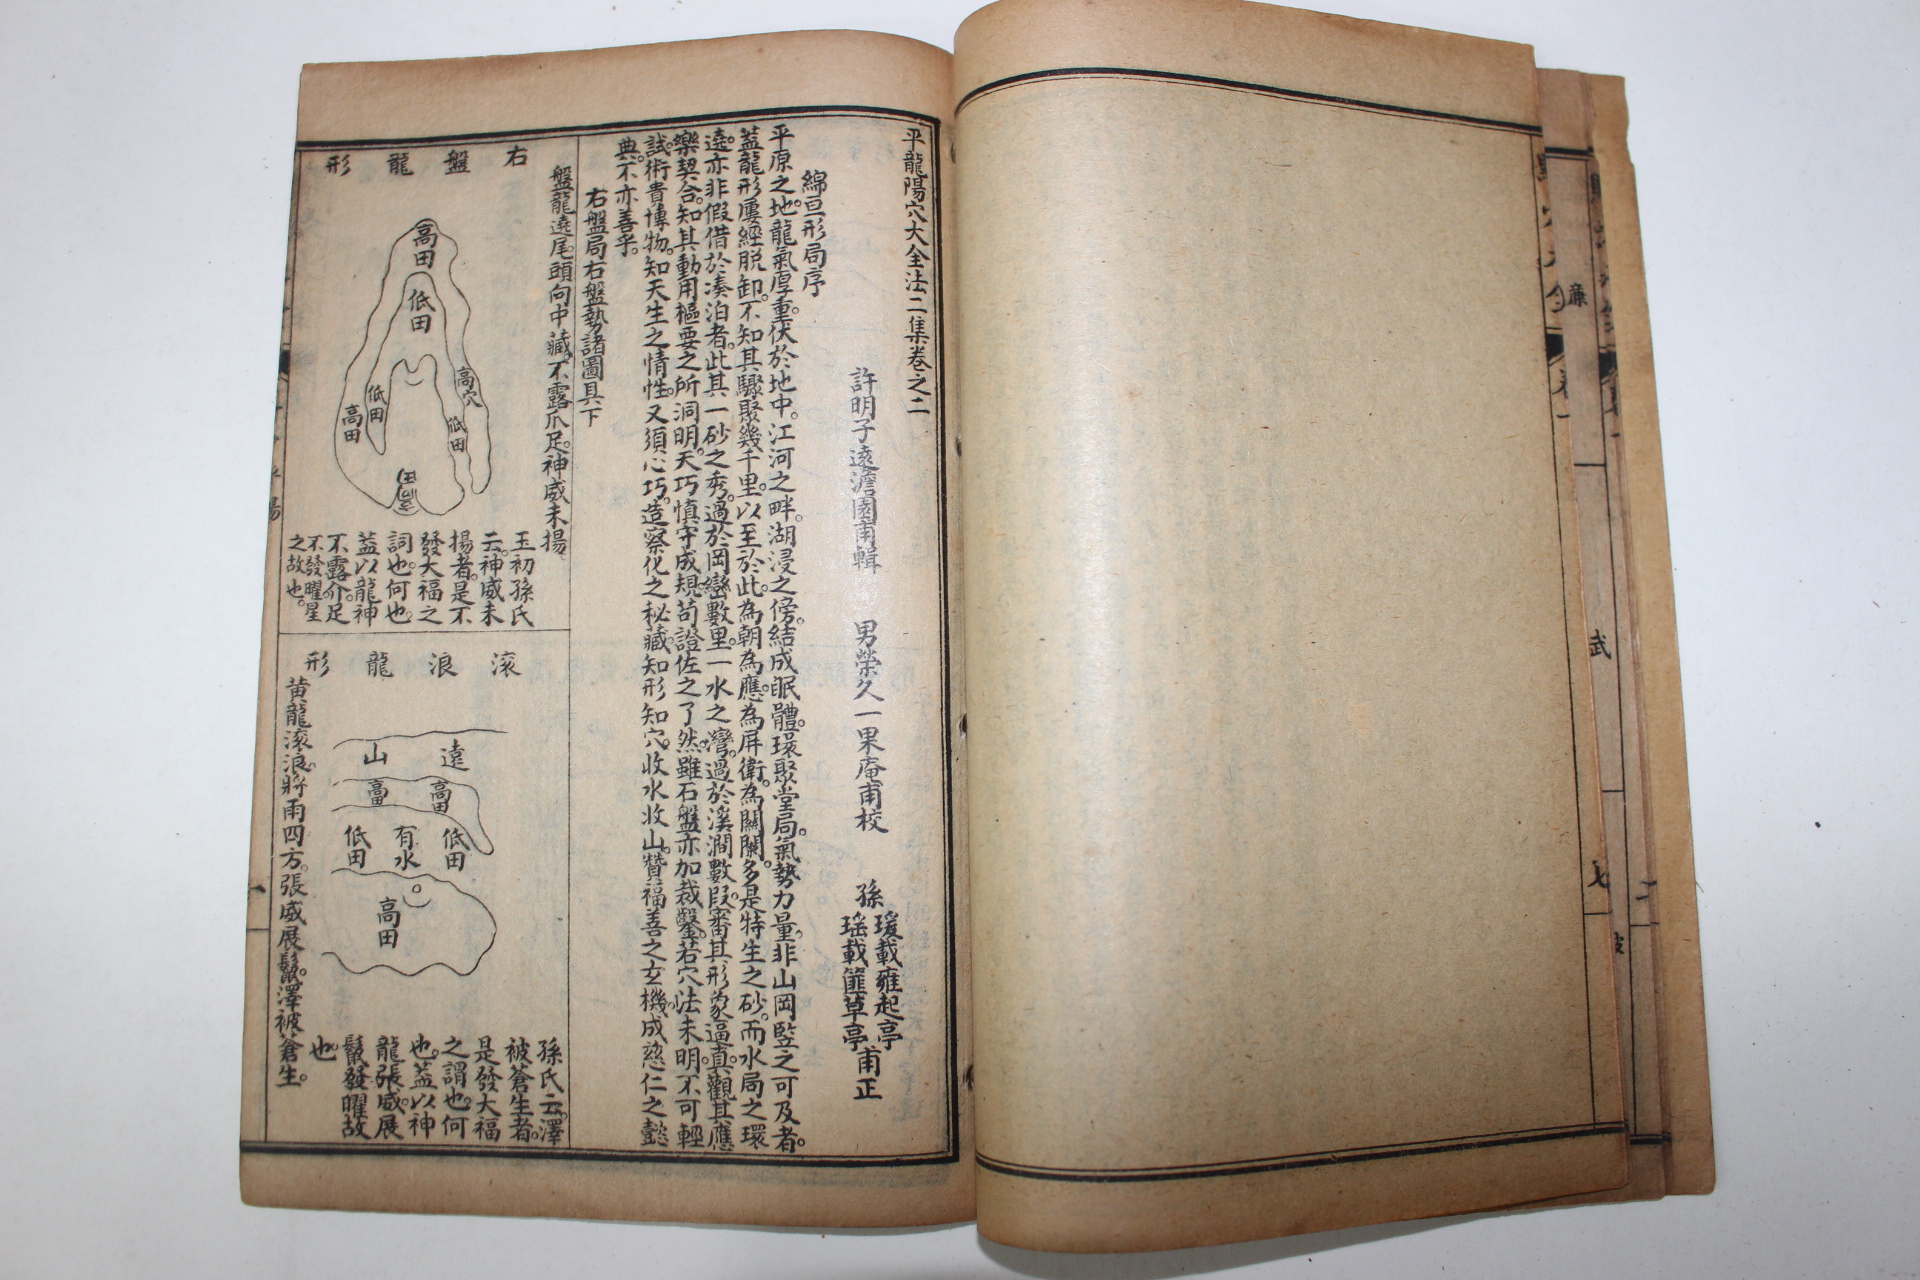 平龍陽穴大全法二集卷之二
許明子遠澹園甫輯
男榮久一果庵甫校
孫
瑗載雍起亭
瑤載篚草亭
甫正
綿亘形局序
平原之地。龍氣厚重。伏於地中。江河之畔。湖浸之傍。結成眠體。環聚堂局。氣勢力量。非山岡監之可及者。
蓋龍形屢經脱卸。不知其驟聚幾千里。以至於此。為朝為應。為屏衛。為關闌。多是特生之砂。而水局之環
遶。亦非假借於湊泊者。此其一砂之秀。過於岡巒數里。一水之灣。過於溪澗數段。審其形象逼真。觀其應
樂契合。知其動用樞要之所。洞明天巧。慎守成規。苟證佐之了然。雖石盤亦加裁鑿。若穴法未明。不可輕
試。術貴博物。知天生之情性。又須心巧。造察化之秘藏。知形知穴。收水收山。贊福善之玄機。成慈仁之懿
典。不亦善乎。
右盤局右盤勢諸圖具下
盤龍遶尾頭向中藏。不露爪足。神威未揚。
右盤龍形
高田
低田
高穴
低田
低田
高田
玉初孫氏
云。神威未
揚者。是不
發大福之
詞也。何也。
蓋以龍神
不露介足
不發曜星
之故也。
滚浪龍形
遠山
高田
高田
低田
有水
低田
高田
孫氏云。澤
被蒼生者。
是發大福
之謂也。何
也。蓋以神
龍張威。展
鬣發曜故
也。
黄龍滚浪。將雨四方。張威展鬣。澤被蒼生。